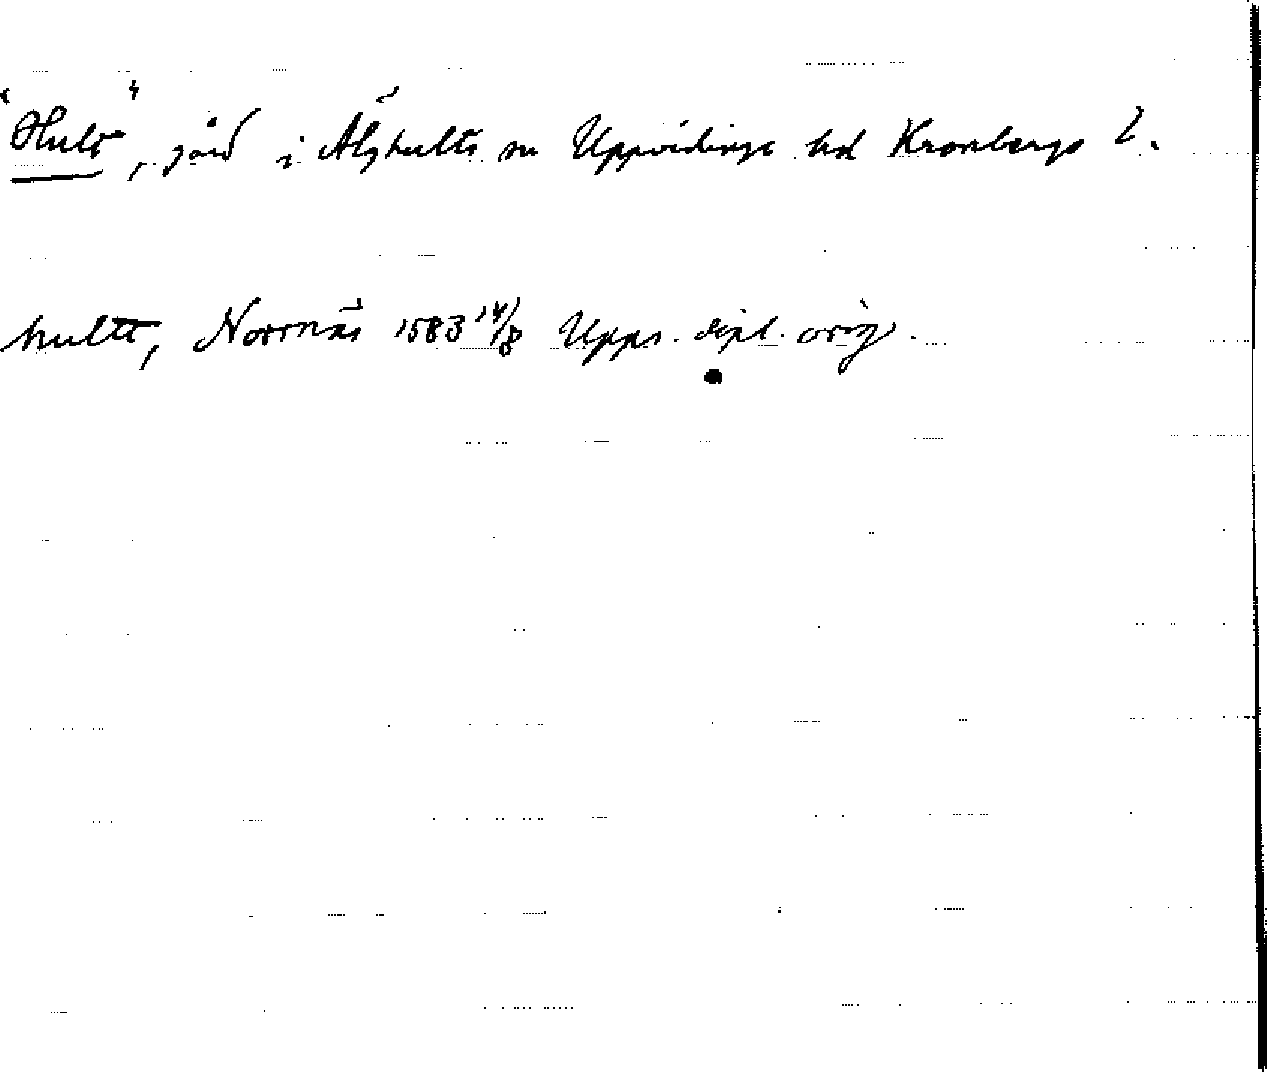 "Hult", gård i Älghults sn Uppvidinge hd Kronbergs l.
hultt, Norrnäs 1583 14/8 Upps. dipl. orig.